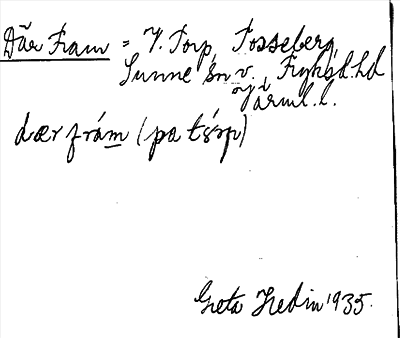 Där Fram = V. Torp, Tosseberg,
Sunne sn v. Fryksd. hd
Värml. l.
dær frám (pa tórp)
Greta Hedin 1935.